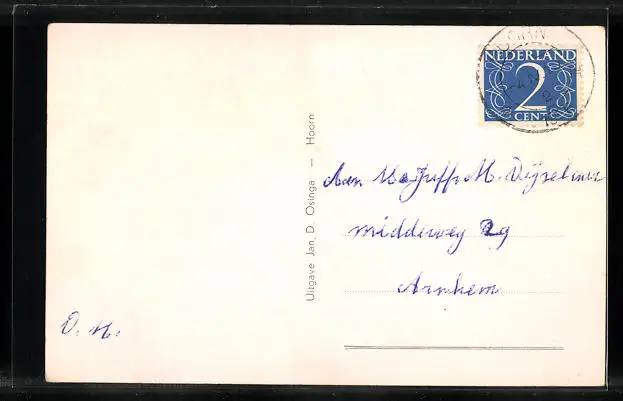 NEDERLAND
2
CENT
Uitgave Jan. D. Osinga — Hoorn
Aan Mej. Juffr. M.
middenweg 29
Arnhem
O. M.